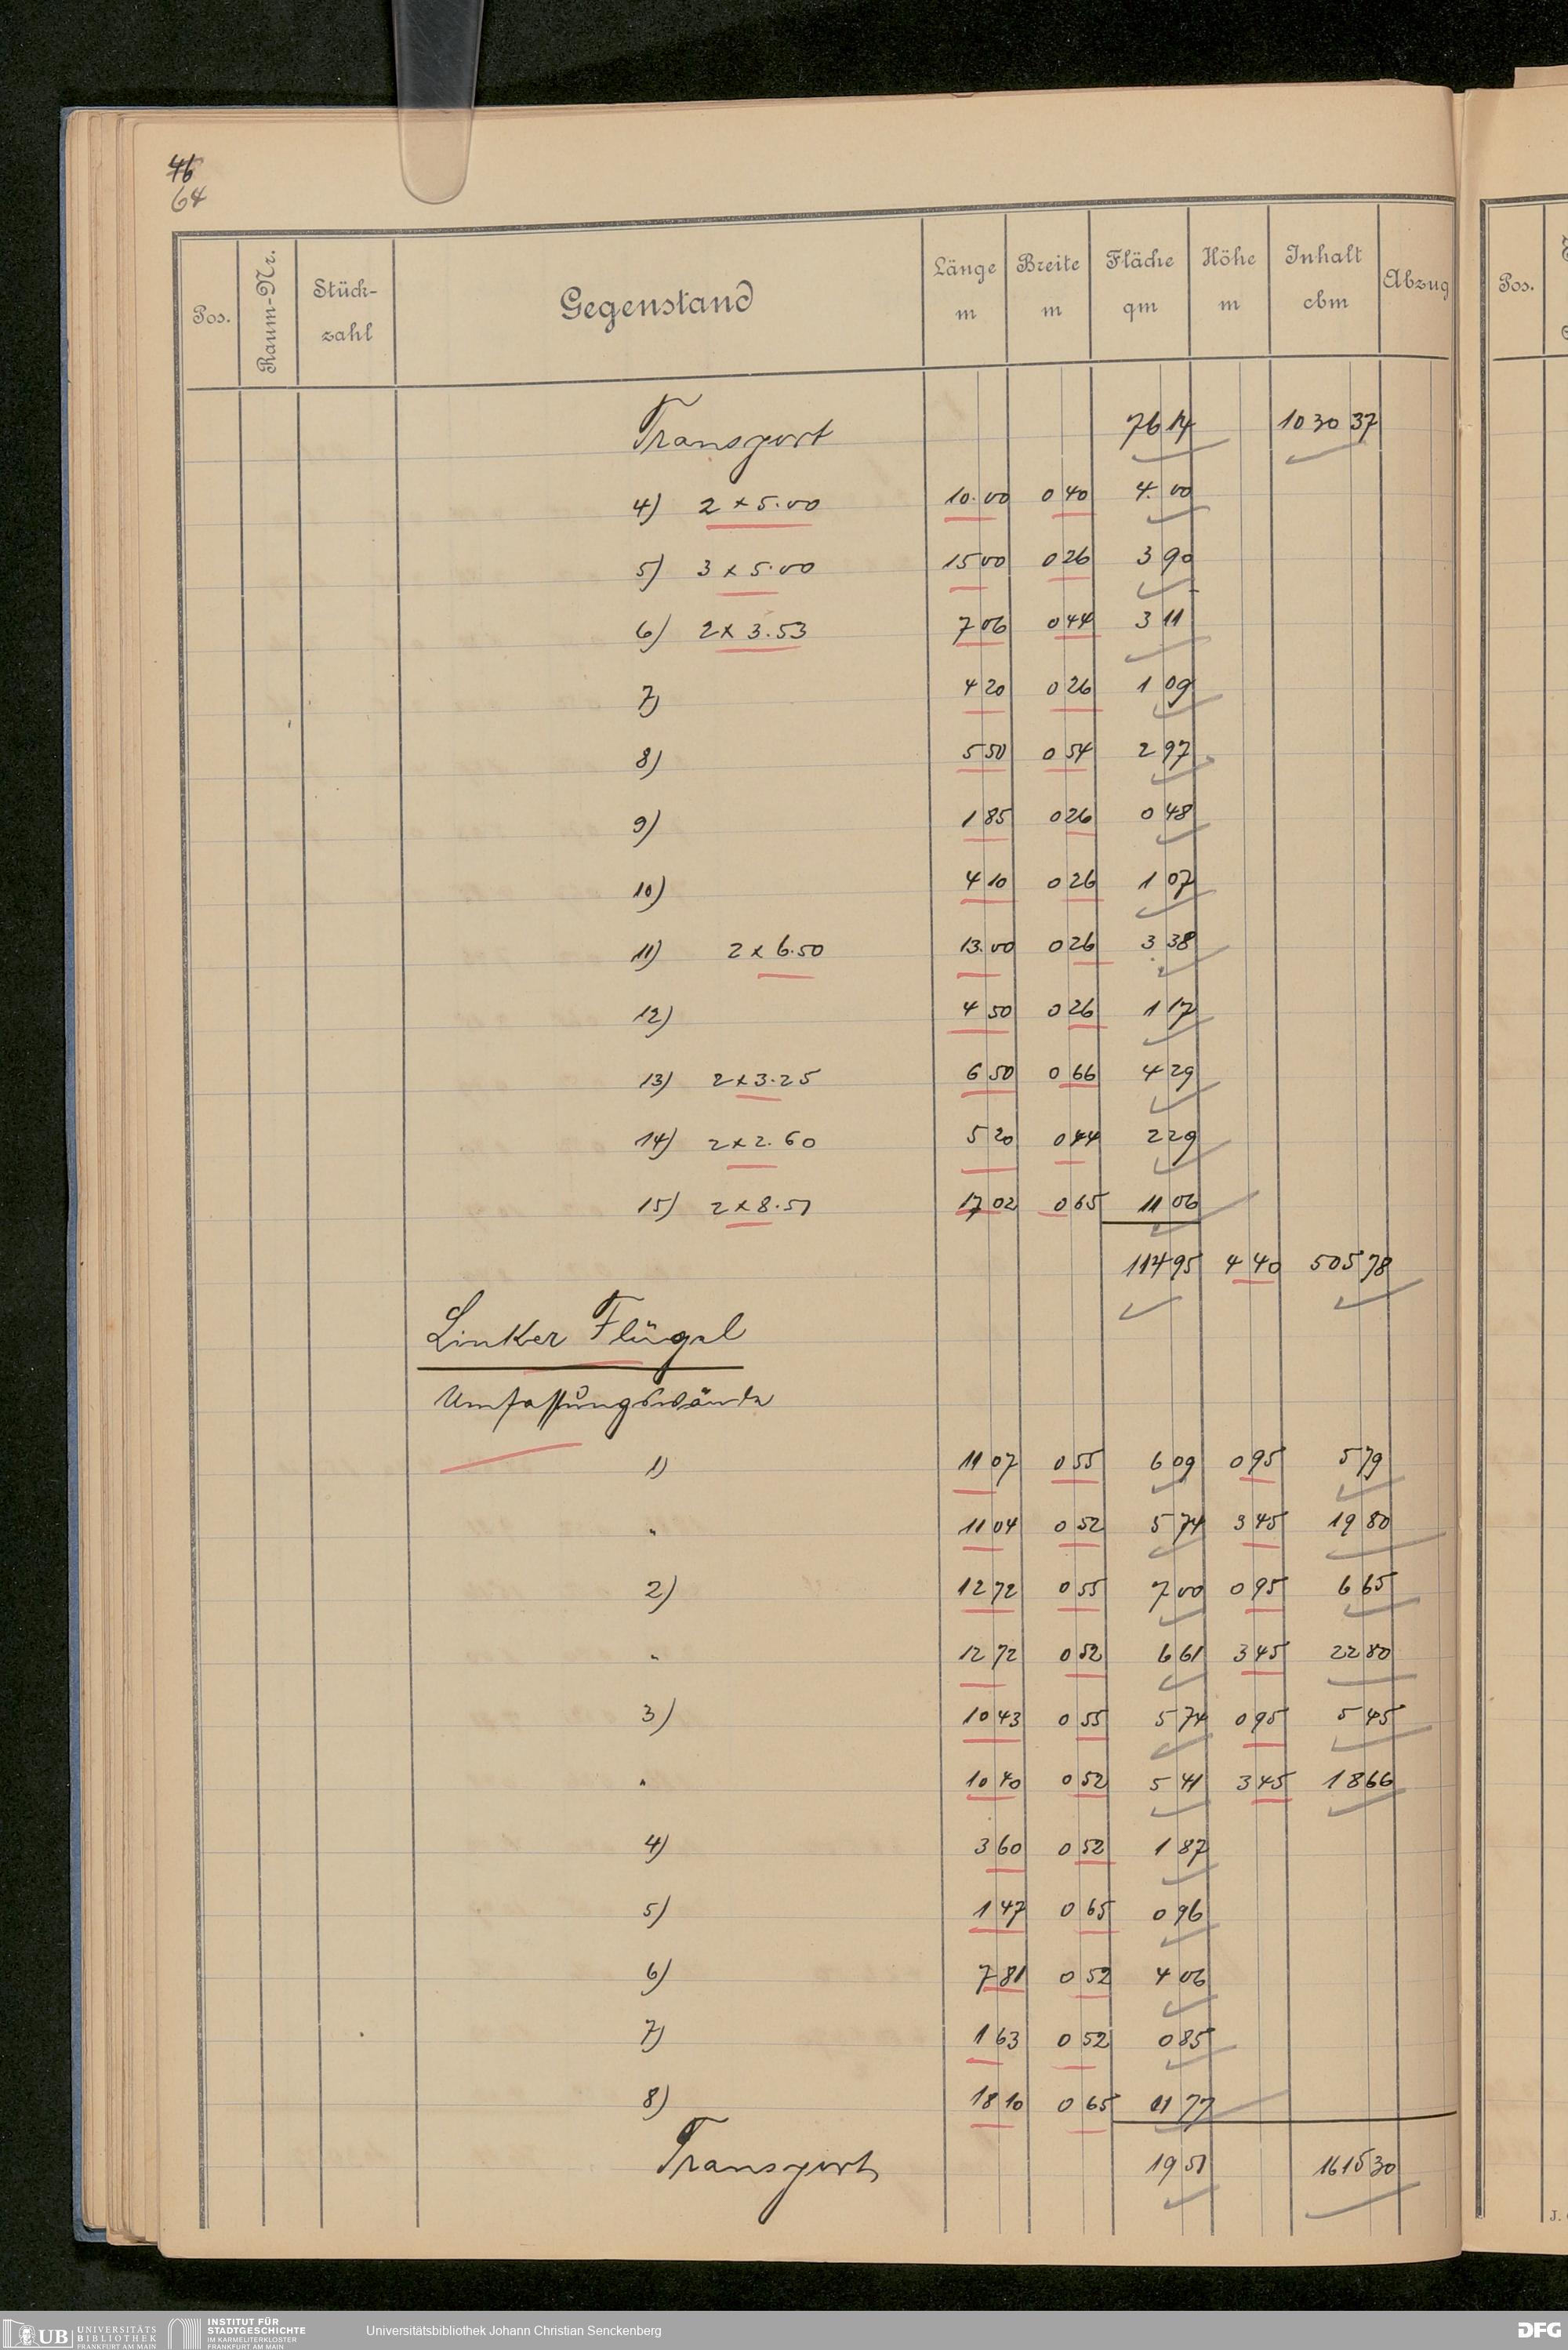 46
64
Pos. Raum-Nr. Stück-zahl Gegenstand Länge m Breite m Fläche qm Höhe m Inhalt cbm Abzug Pos.
Transport 76 14 1030 37
4) 2 x 5.00 10.00 0 40 4.00
5) 3 x 5.00 15 00 0 26 3 90
6) 2 x 3.53 7 06 0 44 3 11
7) 4 20 0 26 1 09
8) 5 50 0 54 2 97
9) 1 85 0 26 0 48
10) 4 10 0 26 1 07
11) 2 x 6.50 13.00 0 26 3 38
12) 4 50 0 26 1 17
13) 2 x 3.25 6 50 0 66 4 29
14) 2 x 2.60 5 20 0 44 2 29
15) 2 x 8.51 17 02 0 65 11 06
114 95 4 40 505 78
Linker Flügel
Umfassungswände
1) 11 07 0 55 6 09 0 95 5 79
" 11 04 0 52 5 74 3 45 19 80
2) 12 72 0 55 7 00 0 95 6 65
" 12 72 0 52 6 61 3 45 22 80
3) 10 43 0 55 5 74 0 95 5 45
" 10 40 0 52 5 41 3 45 18 66
4) 3 60 0 52 1 87
5) 1 47 0 65 0 96
6) 7 81 0 52 4 06
7) 1 63 0 52 0 85
8) 18 10 0 65 11 77
Transport 19 51 1615 30
UB UNIVERSITÄTS BIBLIOTHEK FRANKFURT AM MAIN
INSTITUT FÜR STADTGESCHICHTE IM KARMELITERKLOSTER FRANKFURT AM MAIN
Universitätsbibliothek Johann Christian Senckenberg
DFG